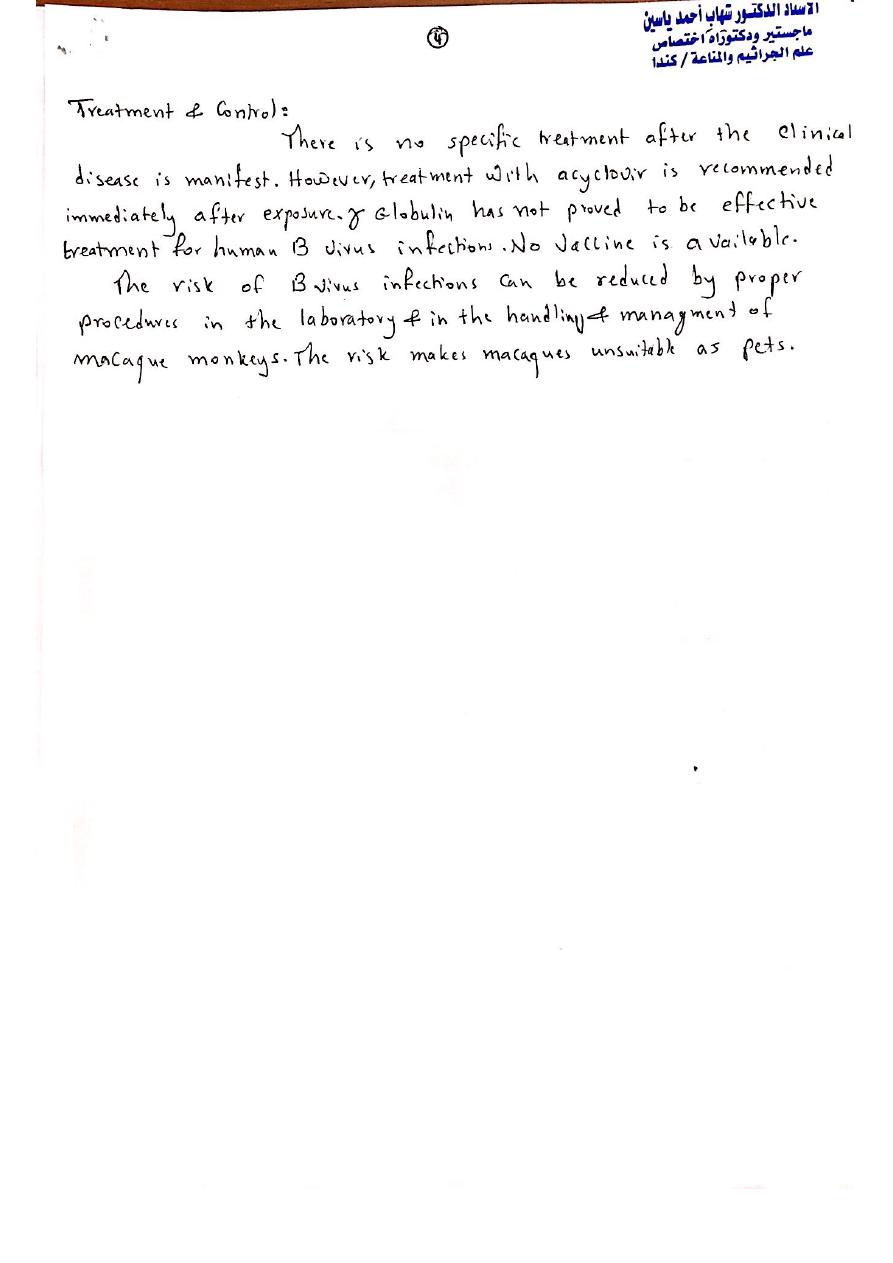 ④
الاستاذ الدكتور شهاب أحمد ياسين
ماجستير ودكتوراه اختصاص
علم الجراثيم والمناعة / كندا
Treatment & Control:
There is no specific treatment after the clinical
disease is manifest. However, treatment with acyclovir is recommended
immediately after exposure. γ Globulin has not proved to be effective
treatment for human B virus infections. No vaccine is available.
The risk of B virus infections can be reduced by proper
procedures in the laboratory & in the handling & managment of
macaque monkeys. The risk makes macaques unsuitable as pets.